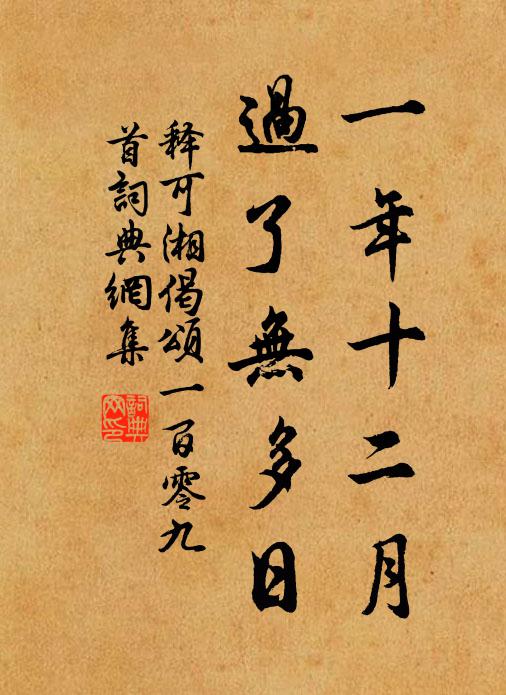 一年十二月
過了無多日
释可湘偈頌一百零九
首詞典網集
詞典
网印